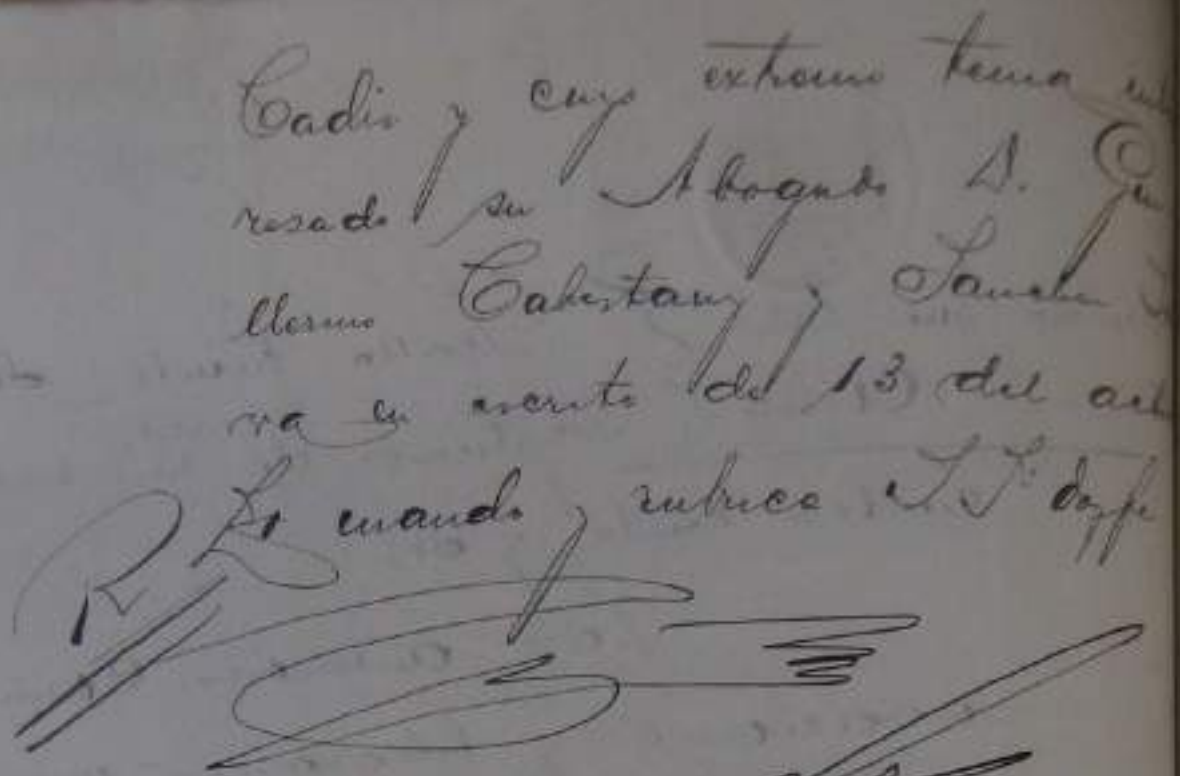 Cadiz y cuyo extremo tenia inte
resado su Abogado D. Gui
llermo Cabestany y Sanchez
va en escrito de 13 del act
Lo mando y rubrica S.Sª doy fe